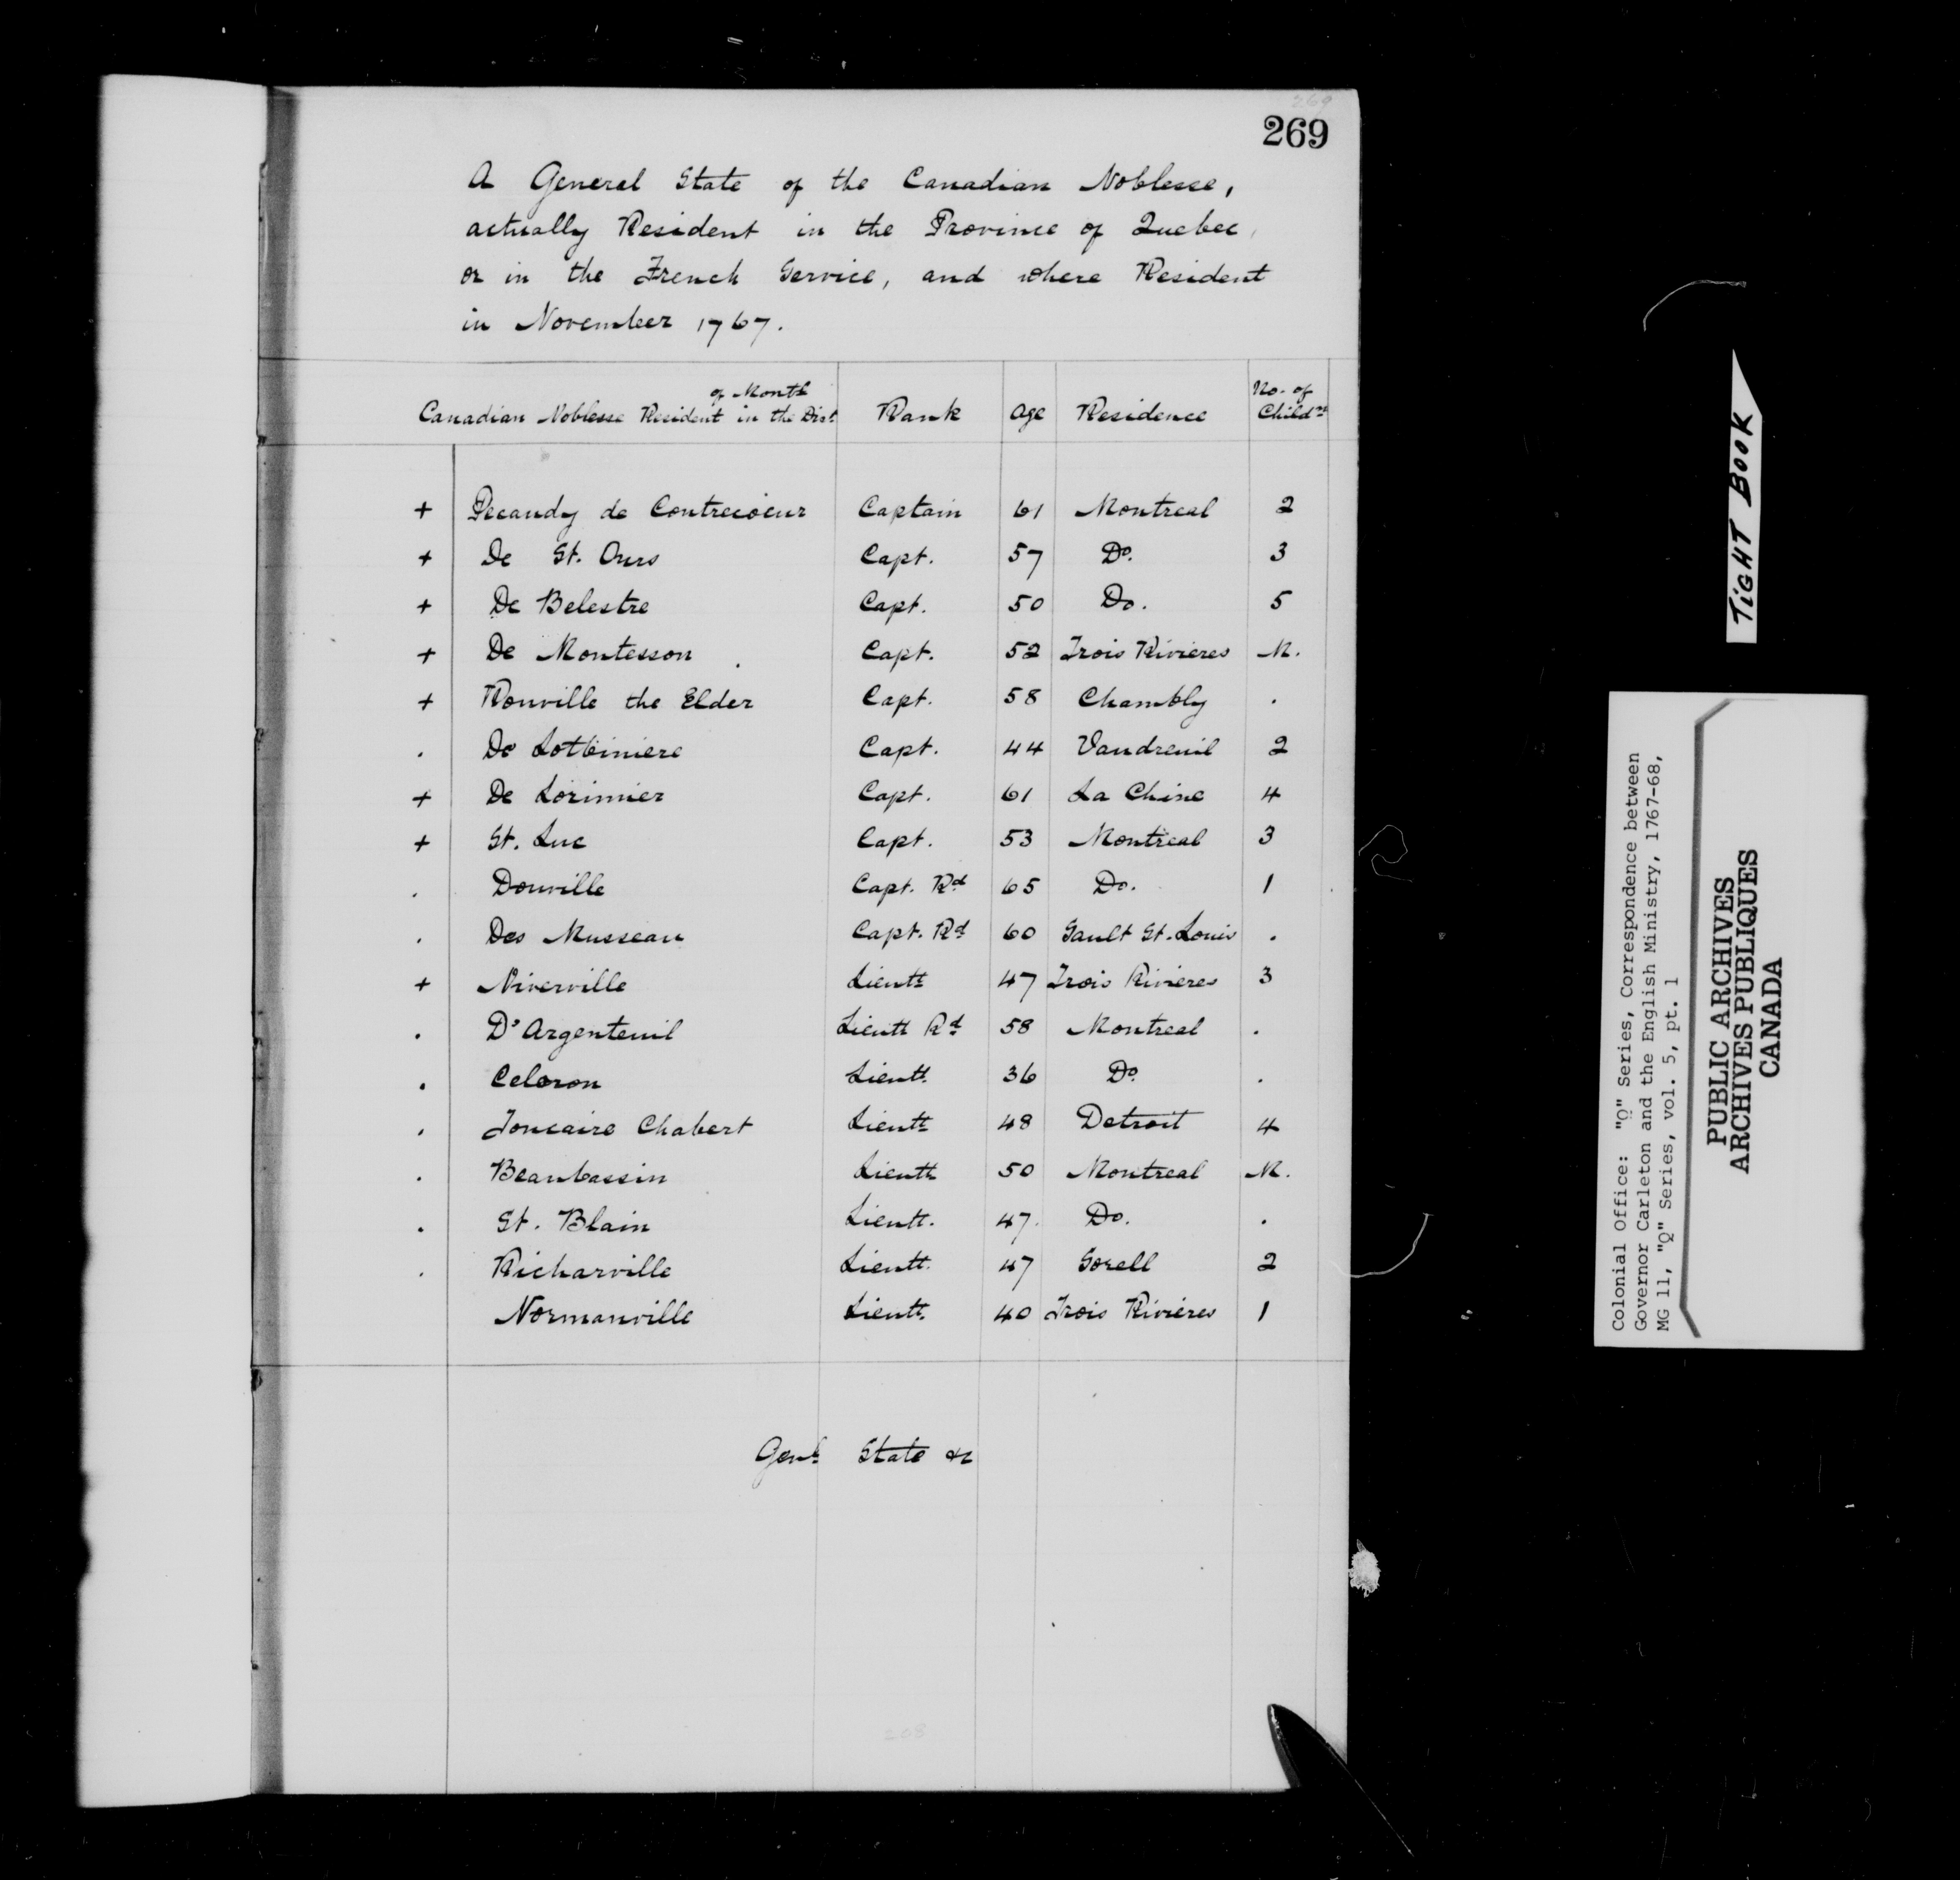 269
269
A General State of the Canadian Noblesse,
actually Resident in the Province of Quebec,
or in the French Service, and where Resident
in November 1767.
Canadian Noblesse Resident in the Dist. of Montl Rank Age Residence No. of Childn
+ Pecaudy de Contrecoeur Captain 61 Montreal 2
+ De St. Ours Capt. 57 Do. 3
+ De Belestre Capt. 50 Do. 5
+ De Montesson Capt. 52 Trois Rivieres M.
+ Rouville the Elder Capt. 58 Chambly .
. De Lotbiniere Capt. 44 Vaudreuil 2
+ De Lorimier Capt. 61 La Chine 4
+ St. Luc Capt. 53 Montreal 3
. Douville Capt. Rd 65 Do. 1
. Des Musseau Capt. Rd 60 Sault St. Louis .
+ Niverville Lieutt 47 Trois Rivieres 3
. D'Argenteuil Lieutt Rd 58 Montreal .
. Celoron Lieutt. 36 Do. .
. Joncaire Chabert Lieutt 48 Detroit 4
. Beaubassin Lieutt 50 Montreal M.
. St. Blain Lieutt. 47. Do. .
. Richarville Lieutt. 47 Sorell 2
Normanville Lieutt. 40 Trois Rivieres 1
Genl State &c
208
TIGHT BOOK
Colonial Office: "Q" Series, Correspondence between
Governor Carleton and the English Ministry, 1767-68,
MG 11, "Q" Series, vol. 5, pt. 1
PUBLIC ARCHIVES
ARCHIVES PUBLIQUES
CANADA